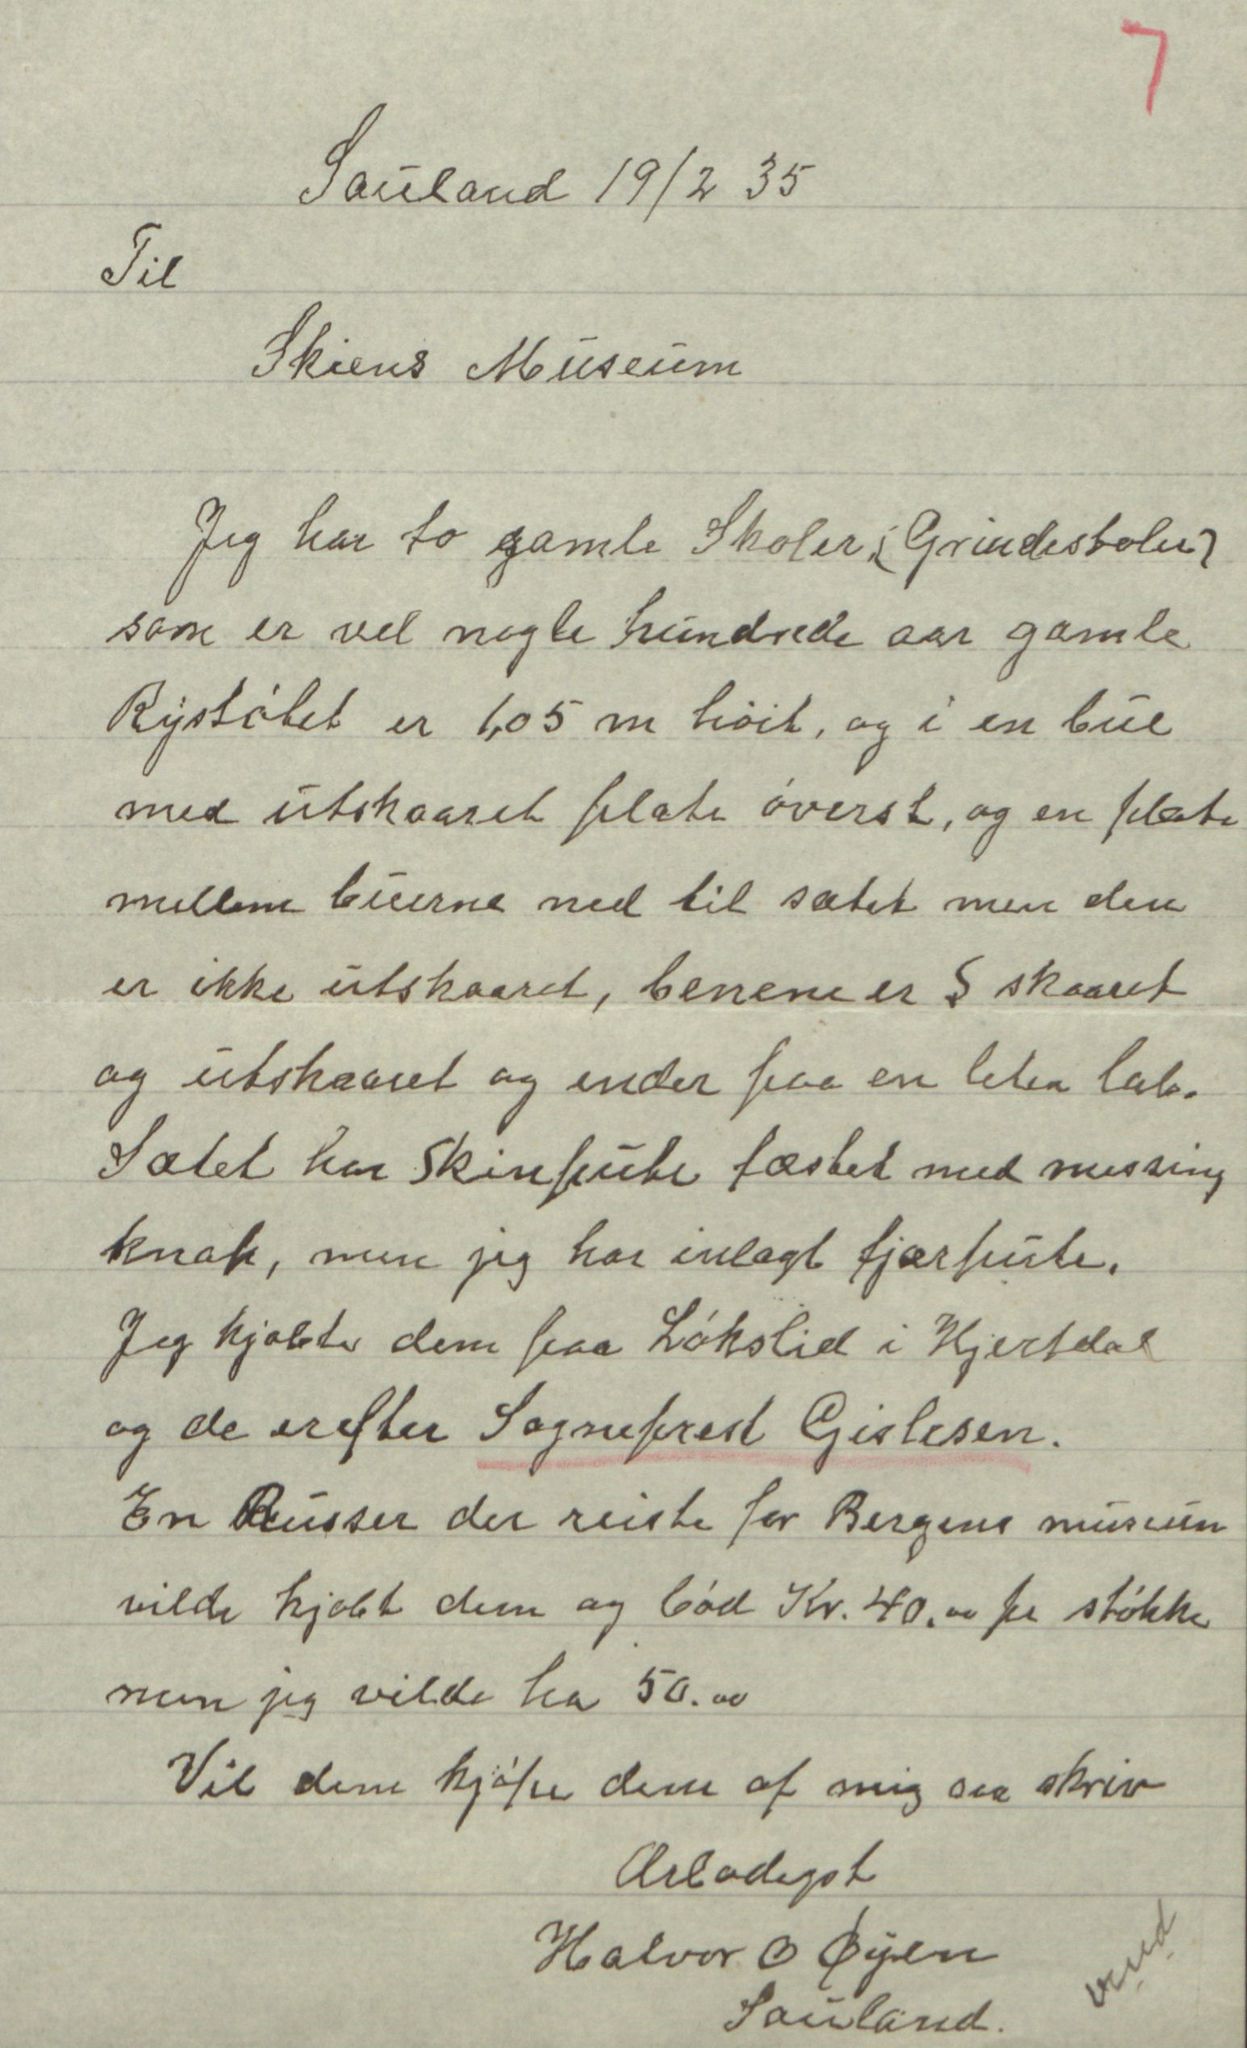 7
Sauland 19/2 35
Til
Skiens Museum
Jeg har to gamle Stoler, (Grindestoler)
som er vel nogle hundrede aar gamle
Rystötet er 1,05 m höit, og i en bue
med utskaaret plate överst, og en plate
mellem buerne ned til sætet men den
er ikke utskaaret, benene er S skaaret
og utskaaret og ender paa en liten lab.
Sætet har Skinpute fæstet med messing
knap, men jeg har inlagt fjærpute.
Jeg kjøbte dem paa Lökslid i Hjertdal
og de er efter Sogneprest Gislesen.
En Russer der reiste for Bergens museum
vilde kjøbt dem og böd Kr. 40.00 pr stökke
men jeg vilde ha 50.00
Vil dem kjöpe dem af mig saa skriv
Ærbødigst
Halvor O Øyen
Sauland.
vend